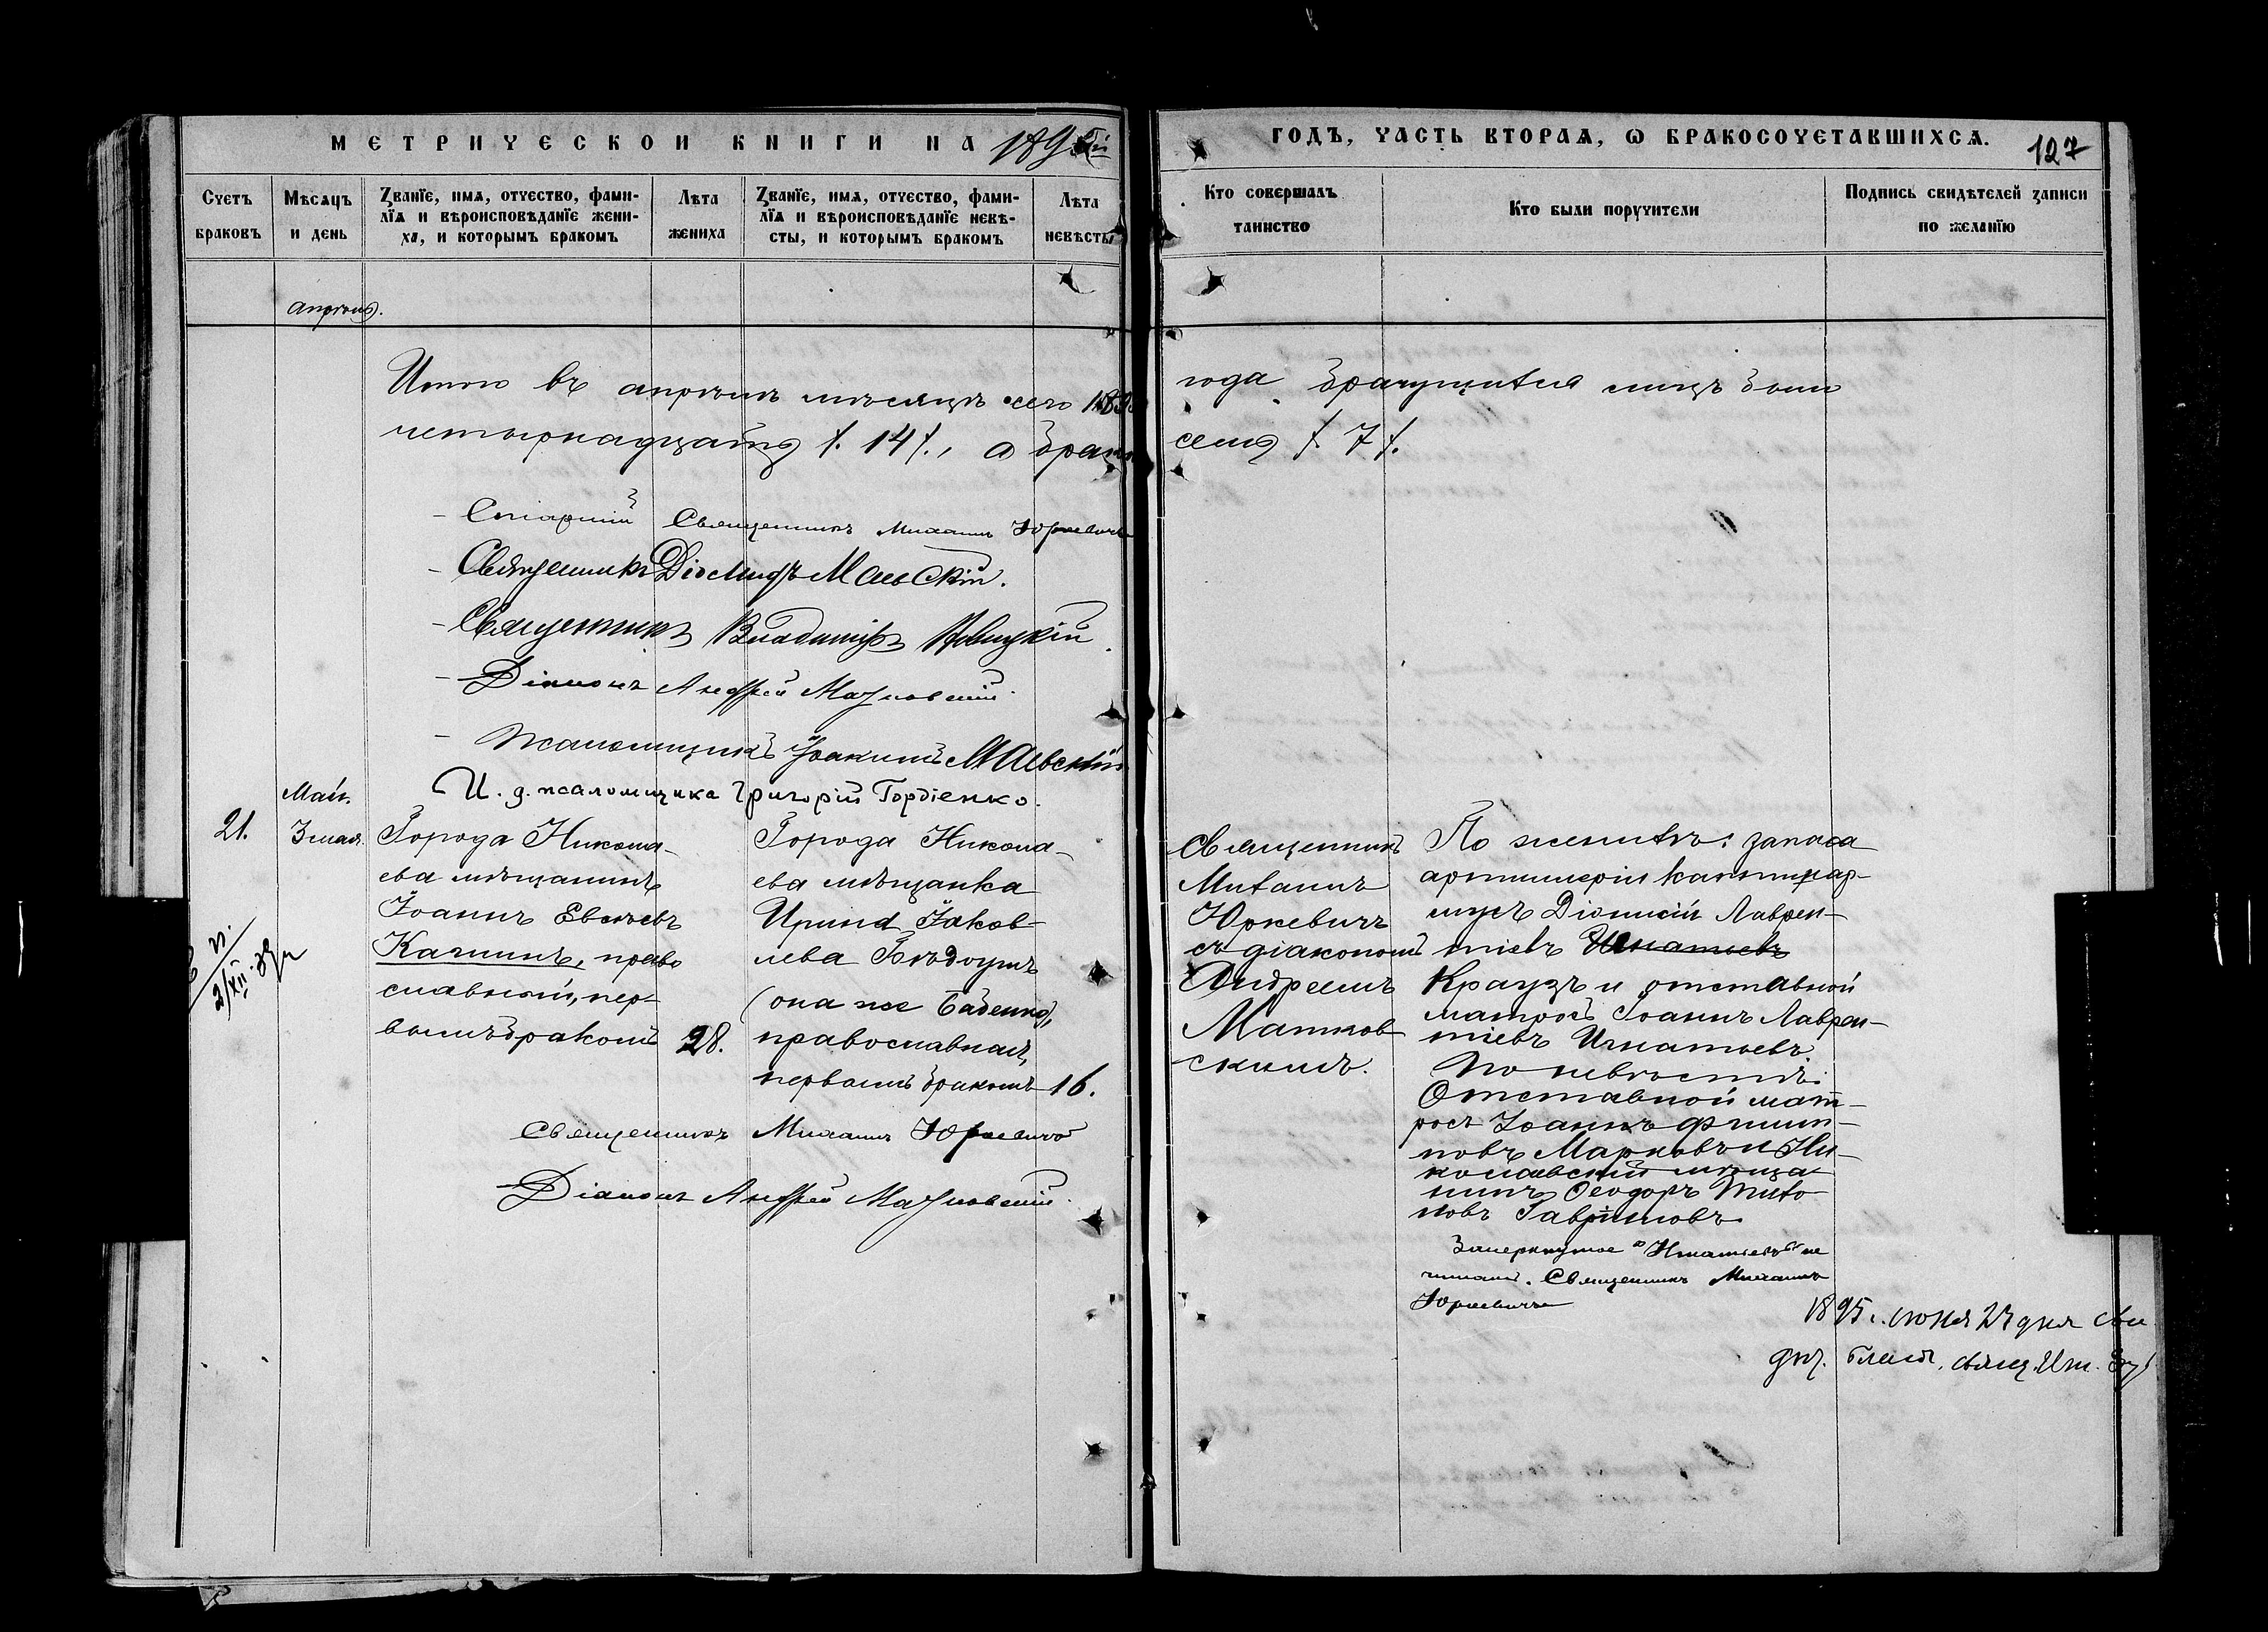 МЕТРИЧЕСКОЙ КНИГИ НА 189
ГОДЪ, ЧАСТЬ ВТОРАЯ, Ѡ БРАКОСОЧЕТАВШИХСЯ.
127
Счетъ браковъ
Мѣсяцъ и день
Званїе, имя, отчество, фами-
лїя и вѣроисповѣданїе жени-
ха, и которымъ бракомъ
Лѣта жениха
Званїе, имя, отчество, фами-
лїя и вѣроисповѣданїе невѣ-
сты, и которымъ бракомъ
Лѣта невѣсты
Кто совершалъ
таинство
Кто были поручители
Подпись свидѣтелей записи
по желанїю
апрѣль.
Итого въ апрѣлѣ мѣсяцѣ сего 189
года брачущихся лицъ было
четырнадцать /. 14 /., а
семь /. 7 /.
Старшій Священникъ Михаилъ Юркевичъ
Священникъ Діомидъ Маевскій.
Священникъ Владиміръ
Діаконъ Андрей Матковскій.
Псаломщикъ Іоакимъ Маевскій
И. д. псаломщика Григорій Гордіенко.
Май.
21.
3 мая.
Города Никола-
ева мѣщанинъ
Іоаннъ Евсѣевъ
Качинъ, право
славный, пер-
вымъ бракомъ
28.
Города Никола-
ева мѣщанка
Ирина Іаков-
лева
(она же Бабенко),
православная,
первымъ бракомъ
16.
Священникъ Михаилъ Юркевичъ
Діаконъ Андрей Матковскій.
Священникъ
Михаилъ
Юркевичъ
съ діакономъ
Андреемъ
Матков
скимъ.
По женихѣ: запаса
артиллеріи каптенар-
мусъ Діонисій Лаврен-
тіевъ Игнатьевъ
Краузъ и отставной
матросъ Іоаннъ Лаврен-
тіевъ Игнатьевъ.
По невѣстѣ:
Отставной мат-
росъ Іоаннъ Филип-
повъ Марковъ и Ни-
колаевскій мѣща
нинъ Ѳеодоръ Тихо-
новъ Гавриловъ.
Зачеркнутое "Игнатьевъ" не
читать. Священникъ Михаилъ
Юркевичъ
1895 г. іюня 24 дня
Благ. свящ.